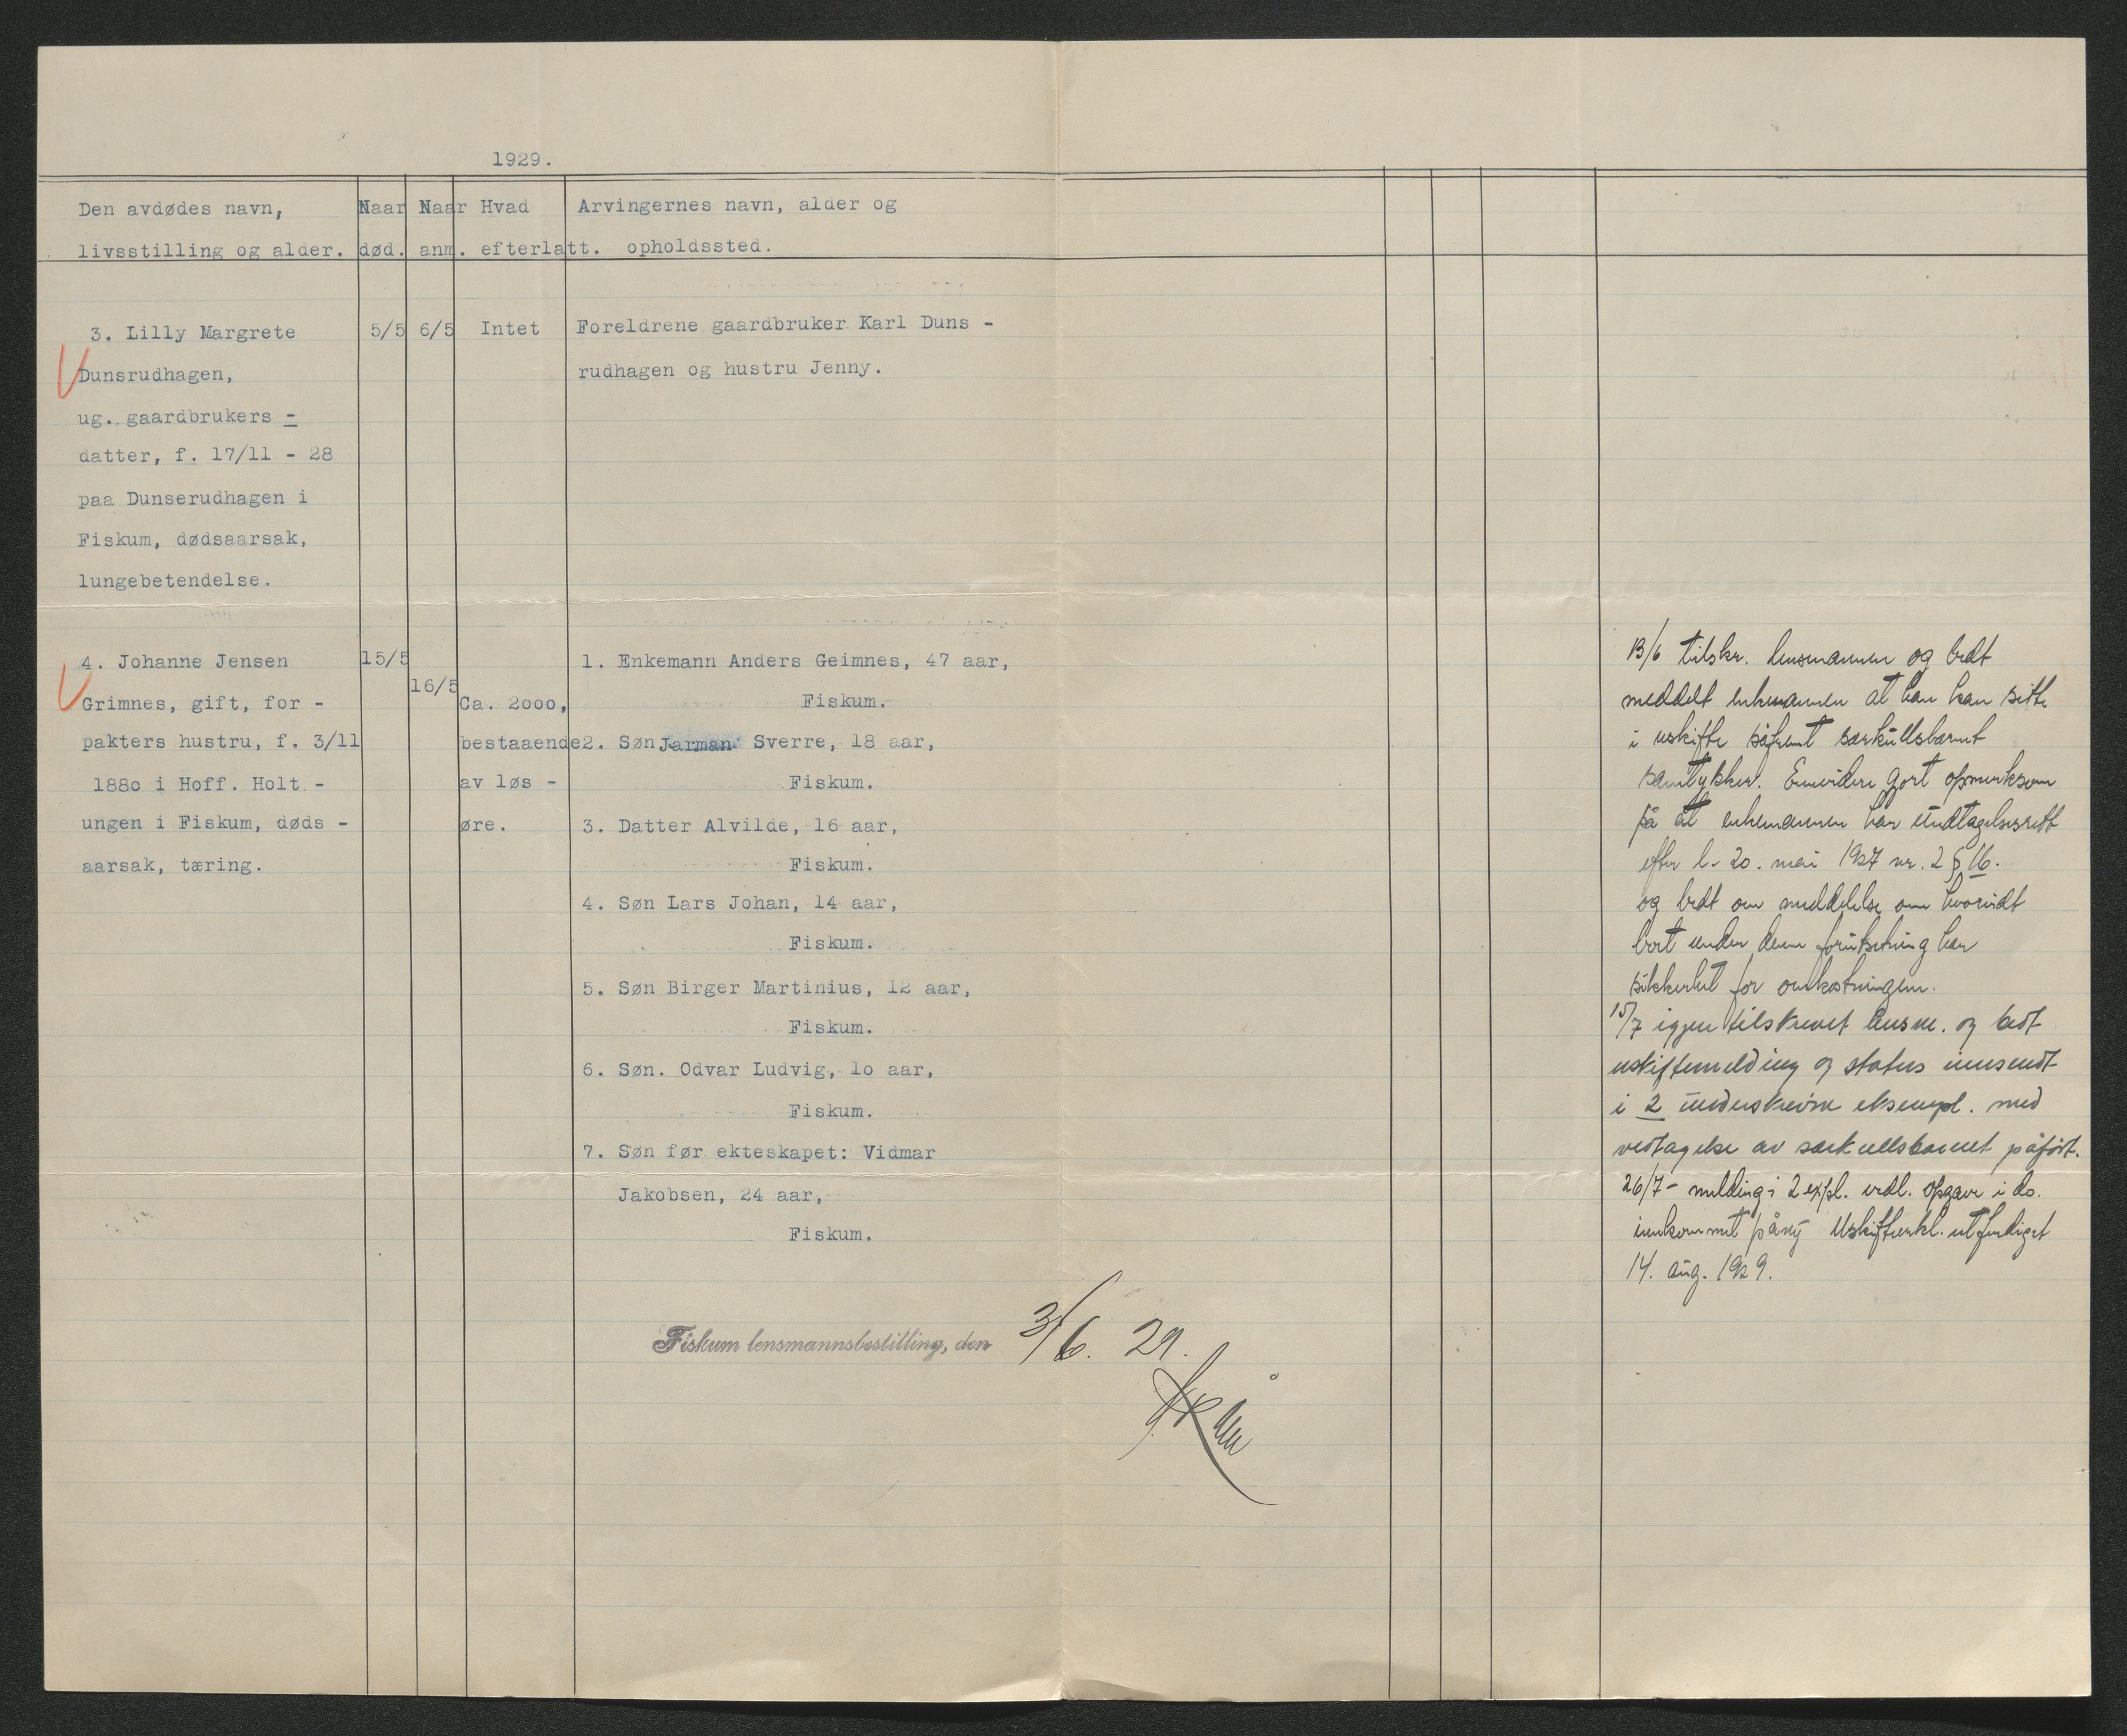 1929.
Den avdødes navn,
livsstilling og alder.
Naar
død.
Naar
anm.
Hvad
efterlatt.
Arvingernes navn, alder og
opholdssted.
3. Lilly Margrete
Dunsrudhagen,
ug. gaardbrukers -
datter, f. 17/11 - 28
paa Dunserudhagen i
Fiskum, dødsaarsak,
lungebetendelse.
5/5
6/5
Intet
Foreldrene gaardbruker Karl Duns -
rudhagen og hustru Jenny.
4. Johanne Jensen
Grimnes, gift, for -
pakters hustru, f. 3/11
1880 i Hoff. Holt -
ungen i Fiskum, døds -
aarsak, tæring.
15/5
16/5
Ca. 2000,
bestaaende
av løs -
øre.
1. Enkemann Anders Geimnes, 47 aar,
Fiskum.
2. Søn Jarman Sverre, 18 aar,
Fiskum.
3. Datter Alvilde, 16 aar,
Fiskum.
4. Søn Lars Johan, 14 aar,
Fiskum.
5. Søn Birger Martinius, 12 aar,
Fiskum.
6. Søn. Odvar Ludvig, 10 aar,
Fiskum.
7. Søn før ekteskapet: Vidmar
Jakobsen, 24 aar,
Fiskum.
Fiskum lensmannsbestilling, den 3/6. 29.
13/6 tilskr. lensmannen og bedt
meddelt enkemannen at han kan sitte
i uskifte såfremt særkullsbarnet
samtykker. Envidere gjort opmerksom
på at enkemannen har undtagelsesrett
efter l. 20. mai 1927 nr. 2 § 16.
og bedt om meddelelse om hvorvidt
boet under denne forutsetning har
sikkerhet for omkostningene.
15/7 igjen tilskrevet lensm. og bedt
uskiftemelding og status innsendt
i 2 underskrevne eksempl. med
vedtagelse av særkullsbarnet påført.
26/7 - melding i 2 expl. vedl. opgave i do.
innkommet påny Uskifteerkl. utferdiget
14. aug. 1929.